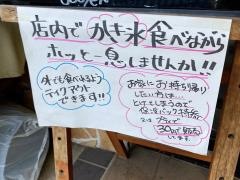 店内でかき氷食べながら
ホッと一息しませんか!!
外でも食べれるよう
テイクアウト
できます!!
お家にお持ち帰り
したい方は…
とけてしまうので
保冷バック持参
又は
30円で販売
います。